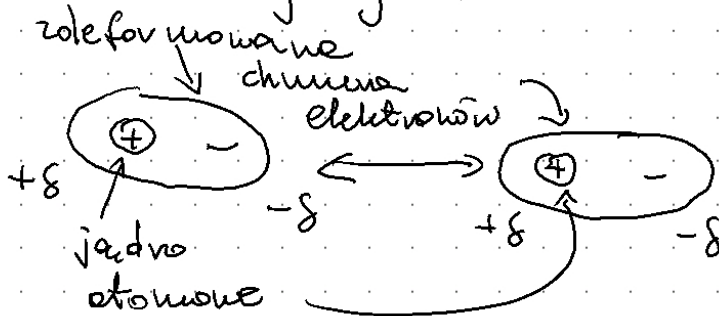 zdeformowana
chmura
elektronów
+ −
+ −
+δ
−δ
+δ
−δ
jądro
atomowe